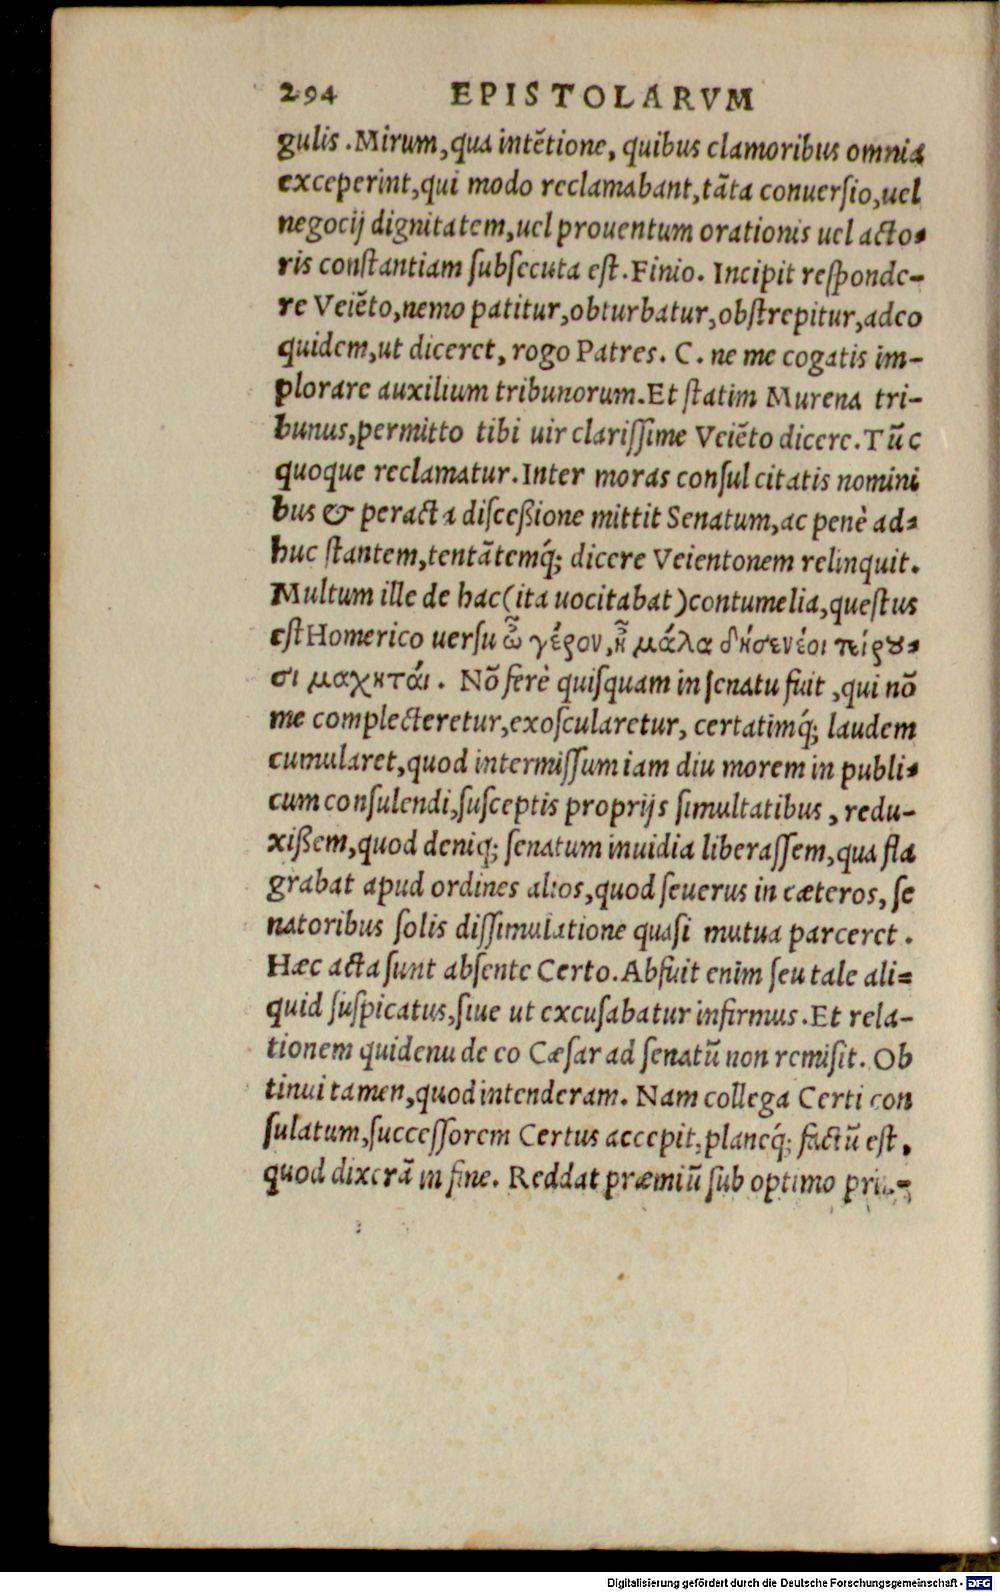 294 EPISTOLARVM
gulis .Mirum,qua intẽtione, quibus clamoribus omnia
exceperint,qui modo reclamabant,tãta conuersio,uel
negocij dignitatem,uel prouentum orationis uel acto-
ris constantiam subsecuta est.Finio. Incipit responde-
re Veiẽto,nemo patitur,obturbatur,obstrepitur,adeo
quidem,ut diceret, rogo Patres. C. ne me cogatis im-
plorare auxilium tribunorum.Et statim Murena tri-
bunus,permitto tibi uir clarissime Veiẽto dicere.Tũc
quoque reclamatur.Inter moras consul citatis nomini
bus & peracta disceßione mittit Senatum,ac penè ad-
huc stantem,tentãtemq́; dicere Veientonem relinquit.
Multum ille de hac(ita uocitabat)contumelia,questus
est Homerico uersu ὦ γέρον,ἦ μάλα δήσενέοι τείρου-
σι μαχητάι. Nõ ferè quisquam in senatu fuit ,qui nõ
me complecteretur,exoscularetur, certatimq́; laudem
cumularet,quod intermissum iam diu morem in publi-
cum consulendi,susceptis proprijs simultatibus , redu-
xißem,quod deniq; senatum inuidia liberassem,qua fla
grabat apud ordines alios,quod seuerus in cæteros, se
natoribus solis dissimulatione quasi mutua parceret .
Hæc acta sunt absente Certo.Abfuit enim seu tale ali-
quid suspicatus,siue ut excusabatur infirmus.Et rela-
tionem quidenu de eo Cæsar ad senatũ non remisit. Ob
tinui tamen,quod intenderam. Nam collega Certi con
sulatum,successorem Certus accepit,planeq́; factũ est,
quod dixerã in fine. Reddat præmiũ sub optimo prin-
Digitalisierung gefördert durch die Deutsche Forschungsgemeinschaft - DFG